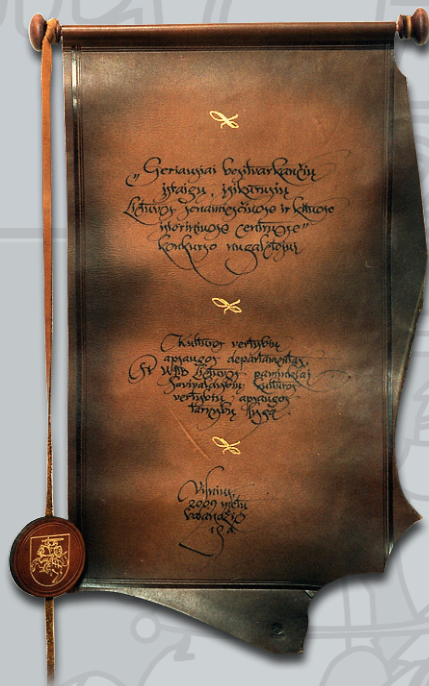 „Geriausiai besitvarkančių
įstaigų, įsikūrusių
Lietuvos senamiesčiuose ir kituose
istoriniuose centruose“
konkurso nugalėtojui
Kultūros vertybių
apsaugos departamentas,
Lietuvos paminklai
Savivaldybių kultūros
vertybių apsaugos
tarnybų
Vilnius,
2009 metų
balandžio